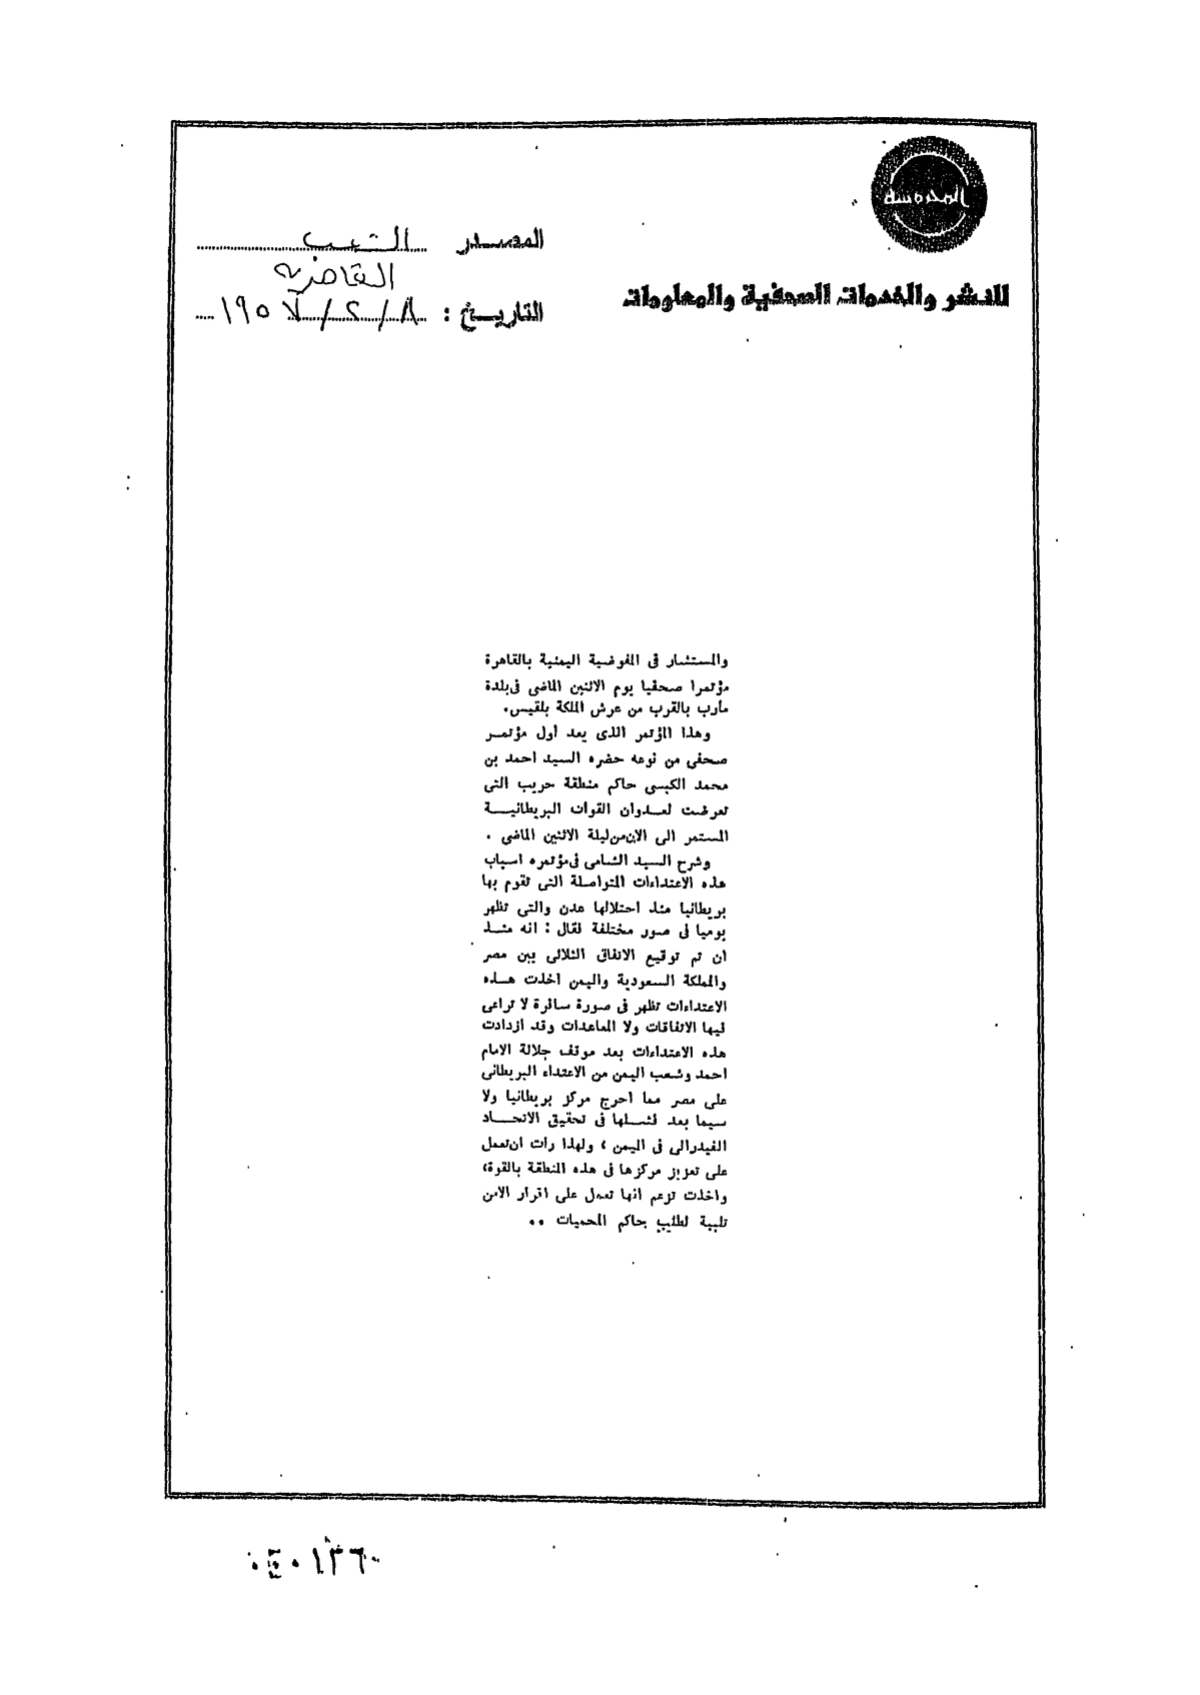 المحروسة
المصدر الشعب
القاهرية
للنشر والخدمات الصحفية والمعلومات
التاريخ : ٨/٢/١٩٥٧
والمستشار فى المفوضية اليمنية بالقاهرة
مؤتمرا صحفيا يوم الاثنين الماضى فى بلدة
مأرب بالقرب من عرش الملكة بلقيس.
وهذا المؤتمر الذى يعد أول مؤتمر
صحفى من نوعه حضره السيد احمد بن
محمد الكبسى حاكم منطقة حريب التى
تعرضت لعدوان القوات البريطانية
المستمر الى الان من ليلة الاثنين الماضى .
وشرح السيد الشامى فى مؤتمره اسباب
هذه الاعتداءات المتواصلة التى تقوم بها
بريطانيا منذ احتلالها عدن والتى تظهر
يوميا فى صور مختلفة فقال : انه منذ
ان تم توقيع الاتفاق الثلاثى بين مصر
والمملكة السعودية واليمن اخذت هذه
الاعتداءات تظهر فى صورة سافرة لا تراعى
فيها الاتفاقات ولا المعاهدات وقد ازدادت
هذه الاعتداءات بعد موقف جلالة الامام
احمد وشعب اليمن من الاعتداء البريطانى
على مصر مما احرج مركز بريطانيا ولا
سيما بعد فشلها فى تحقيق الاتحاد
الفيدرالى فى اليمن ، ولهذا رات ان تعمل
على تعزيز مركزها فى هذه المنطقة بالقوة،
واخذت تزعم انها تعمل على اقرار الامن
تلبية لطلب حاكم المحميات ..